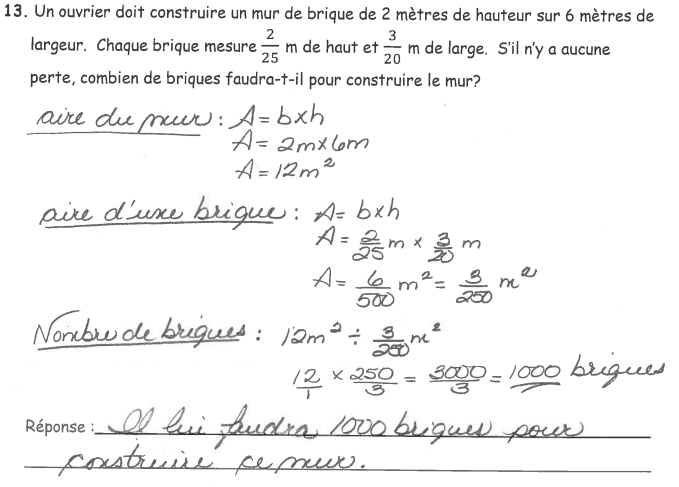 13. Un ouvrier doit construire un mur de brique de 2 mètres de hauteur sur 6 mètres de
largeur. Chaque brique mesure 2/25 m de haut et 3/20 m de large. S'il n'y a aucune
perte, combien de briques faudra-t-il pour construire le mur?
aire du mur : A = bxh
A = 2m x 6m
A = 12m²
aire d'une brique : A = bxh
A = 2/25 m x 3/20 m
A = 6/500 m² = 3/250 m²
Nombre de briques : 12m² ÷ 3/250 m²
12/1 x 250/3 = 3000/3 = 1000 briques
Réponse : Il lui faudra 1000 briques pour
construire ce mur.